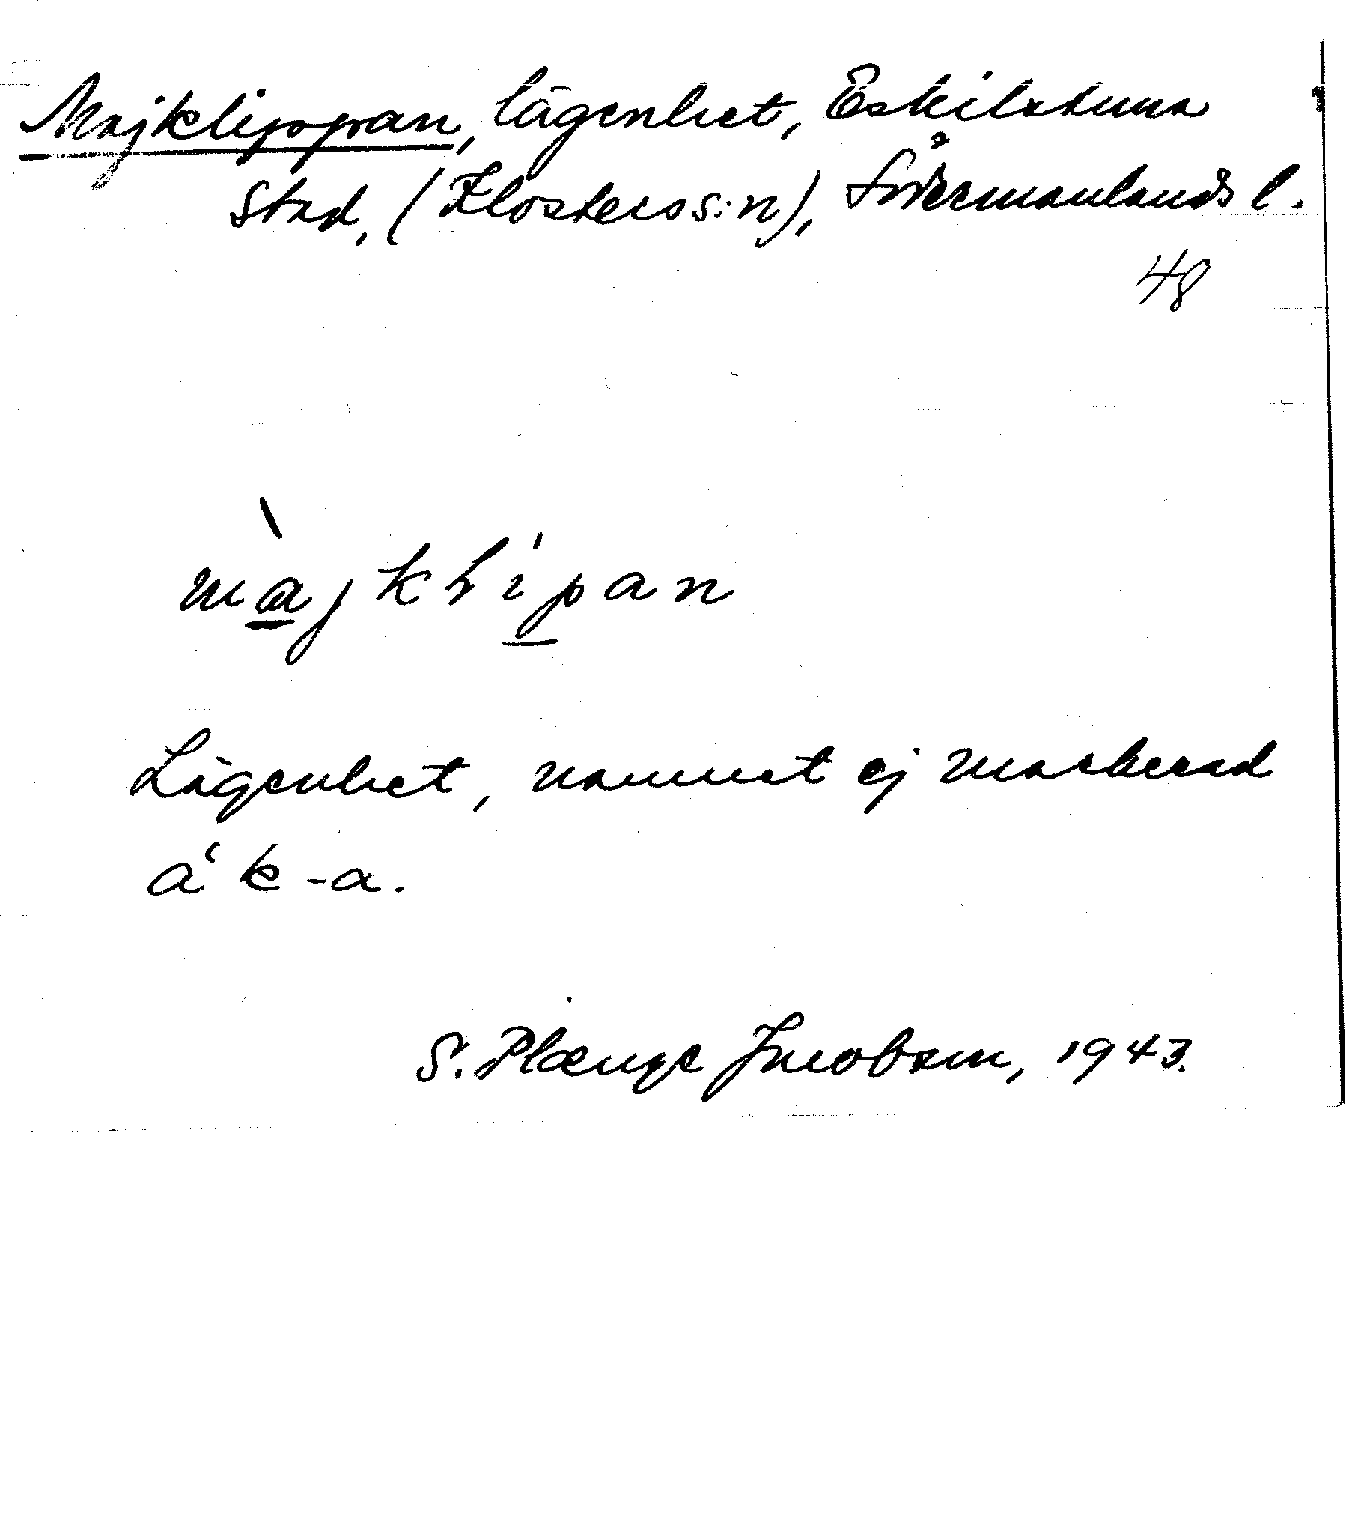 Majklippan, lägenhet, Eskilstuna
Stad, (Klosters s:n), Södermanlands l.
48
màjklipan
Lägenhet, namnet ej markerad
å k-a.
S. Plænge Jacobson, 1943.